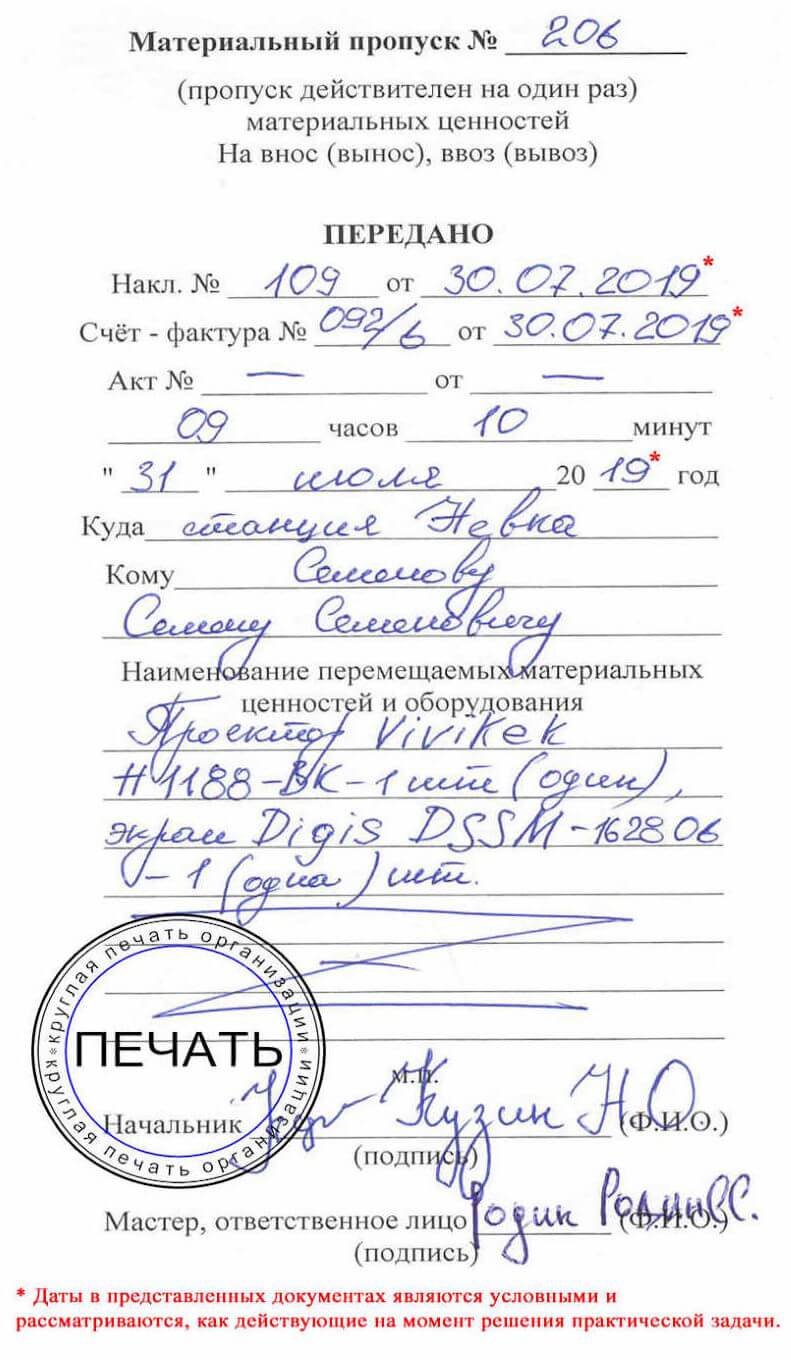 Материальный пропуск № 206
(пропуск действителен на один раз)
материальных ценностей
На внос (вынос), ввоз (вывоз)
ПЕРЕДАНО
Накл. № 109 от 30.07.2019*
Счёт - фактура № 092/6 от 30.07.2019*
Акт № — от —
09 часов 10 минут
" 31 " июля 20 19* год
Куда станция Невка
Кому Семенову
Семену Семеновичу
Наименование перемещаемых материальных
ценностей и оборудования
Проектор Vivitek
H1188-BK-1 шт (один),
экран Digis DSSM-162806
- 1 (одна) шт.
круглая печать организации * круглая печать организации *
ПЕЧАТЬ
м.п.
Начальник Кузин Н О (Ф.И.О.)
(подпись)
Мастер, ответственное лицо Родин Родин С.С. (Ф.И.О.)
(подпись)
* Даты в представленных документах являются условными и
рассматриваются, как действующие на момент решения практической задачи.